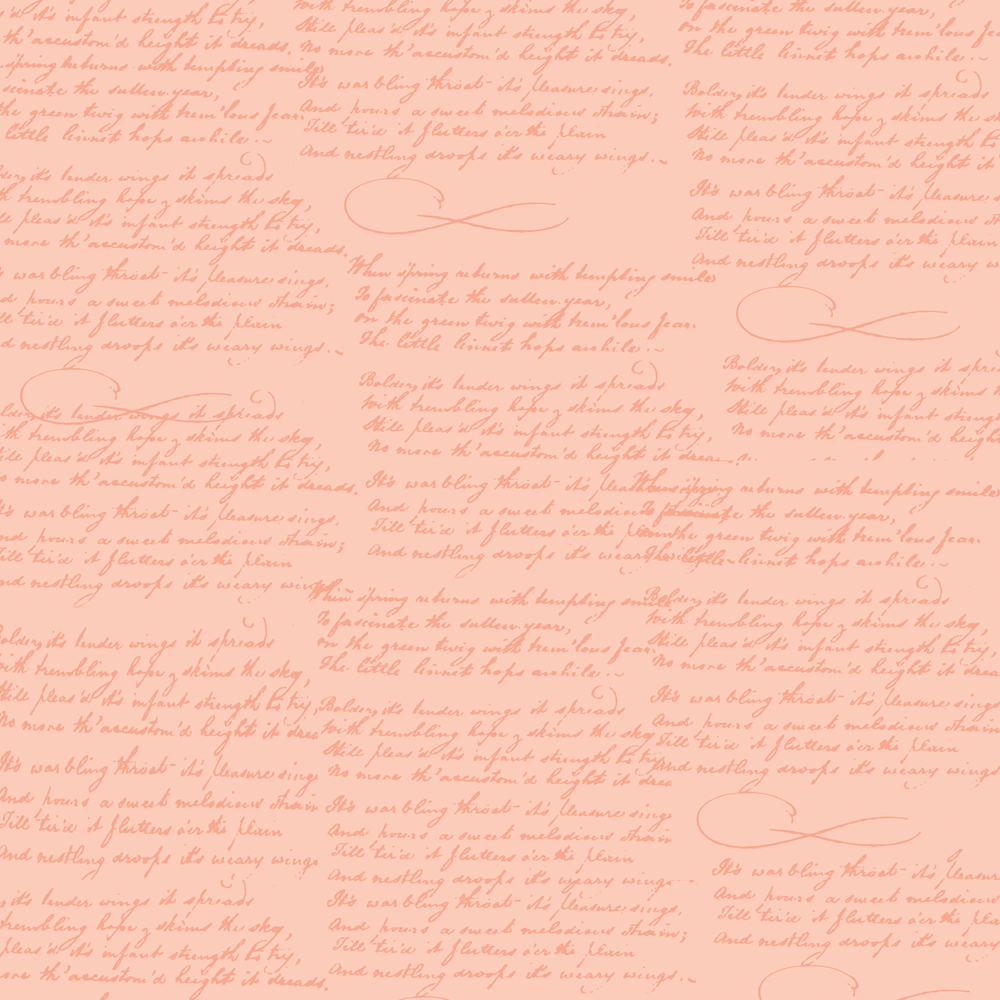 it's infant strength to try,
th'accustom'd height it dreads.
spring returns with tempting smile
the sullen year,
the green twig with trem'lous fear.
little linnet hops awhile.
it's tender wings it spreads
trembling hope, skims the sky,
pleas'd it's infant strength to try,
more th'accustom'd height it dreads.
warbling throat it's pleasure sings,
pours a sweet melodious strain;
tir'd it flutters o'er the plain
nestling droops it's weary wings.
it's tender wings it spreads
trembling hope, skims the sky,
pleas'd it's infant strength to try,
more th'accustom'd height it dreads.
warbling throat it's pleasure sings,
pours a sweet melodious strain;
tir'd it flutters o'er the plain
nestling droops it's weary
it's tender wings it spreads
trembling hope, skims the sky,
pleas'd it's infant strength to try,
No more th'accustom'd height it
It's warbling throat it's pleasure
And pours a sweet melodious strain
Till tir'd it flutters o'er the plain
And nestling droops it's weary wings
it's tender wings it spreads
trembling hope, skims the sky,
pleas'd it's infant strength to try,
more th'accustom'd height it dreads.
With trembling hope, skims the sky,
Still pleas'd it's infant strength to try,
No more th'accustom'd height it dreads.
It's warbling throat it's pleasure sings,
And pours a sweet melodious strain;
Till tir'd it flutters o'er the plain
And nestling droops it's weary wings.
When spring returns with tempting smile
To fascinate the sullen year,
On the green twig with trem'lous fear.
The little linnet hops awhile.
Bolder, it's tender wings it spreads
With trembling hope, skims the sky,
Still pleas'd it's infant strength to try,
No more th'accustom'd height it
It's warbling throat it's
And pours a sweet melodious
Till tir'd it flutters o'er the
And nestling droops it's
When spring returns with tempting
To fascinate the sullen year,
On the green twig with trem'lous fear.
The little linnet hops awhile.
Bolder, it's tender wings it spreads
With trembling hope, skims the sky
Still pleas'd it's infant strength to try
No more th'accustom'd height it
It's warbling throat it's pleasure sings,
And pours a sweet melodious strain
Till tir'd it flutters o'er the plain
And nestling droops it's weary wings
It's warbling throat it's pleasure sings,
And pours a sweet melodious strain;
Till tir'd it flutters o'er the plain
And nestling droops it's weary wings.
To fascinate the sullen year,
On the green twig with trem'lous
The little linnet hops awhile.
Bolder, it's tender wings it spreads
With trembling hope, skims the
Still pleas'd it's infant strength to
No more th'accustom'd height it
It's warbling throat it's pleasure
And pours a sweet melodious
Till tir'd it flutters o'er the plain
And nestling droops it's weary
Bolder, it's tender wings it
With trembling hope, skims
Still pleas'd it's infant
No more th'accustom'd
returns with tempting smile
the sullen year,
the green twig with trem'lous fear.
linnet hops awhile.
Bolder, it's tender wings it spreads
With trembling hope, skims the sky,
Still pleas'd it's infant strength to try,
No more th'accustom'd height it
It's warbling throat it's pleasure sings
And pours a sweet melodious
Till tir'd it flutters o'er the plain
And nestling droops it's weary wings
It's warbling throat it's pleasure
And pours a sweet melodious
Till tir'd it flutters o'er the
And nestling droops it's weary